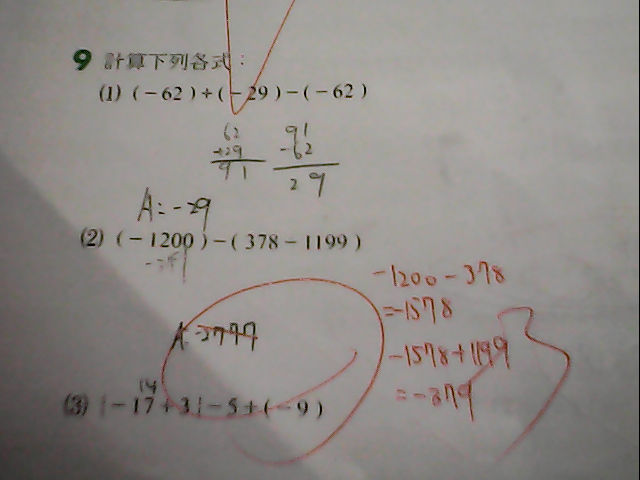 9 計算下列各式:
(1) (-62)+(-29)-(-62)
62 91
+29 -62
91 29
A:-29
(2) (-1200)-(378-1199)
-1200-378
=-1578
-1578+1199
=-379
14
(3) |-17+3|-5+(-9)